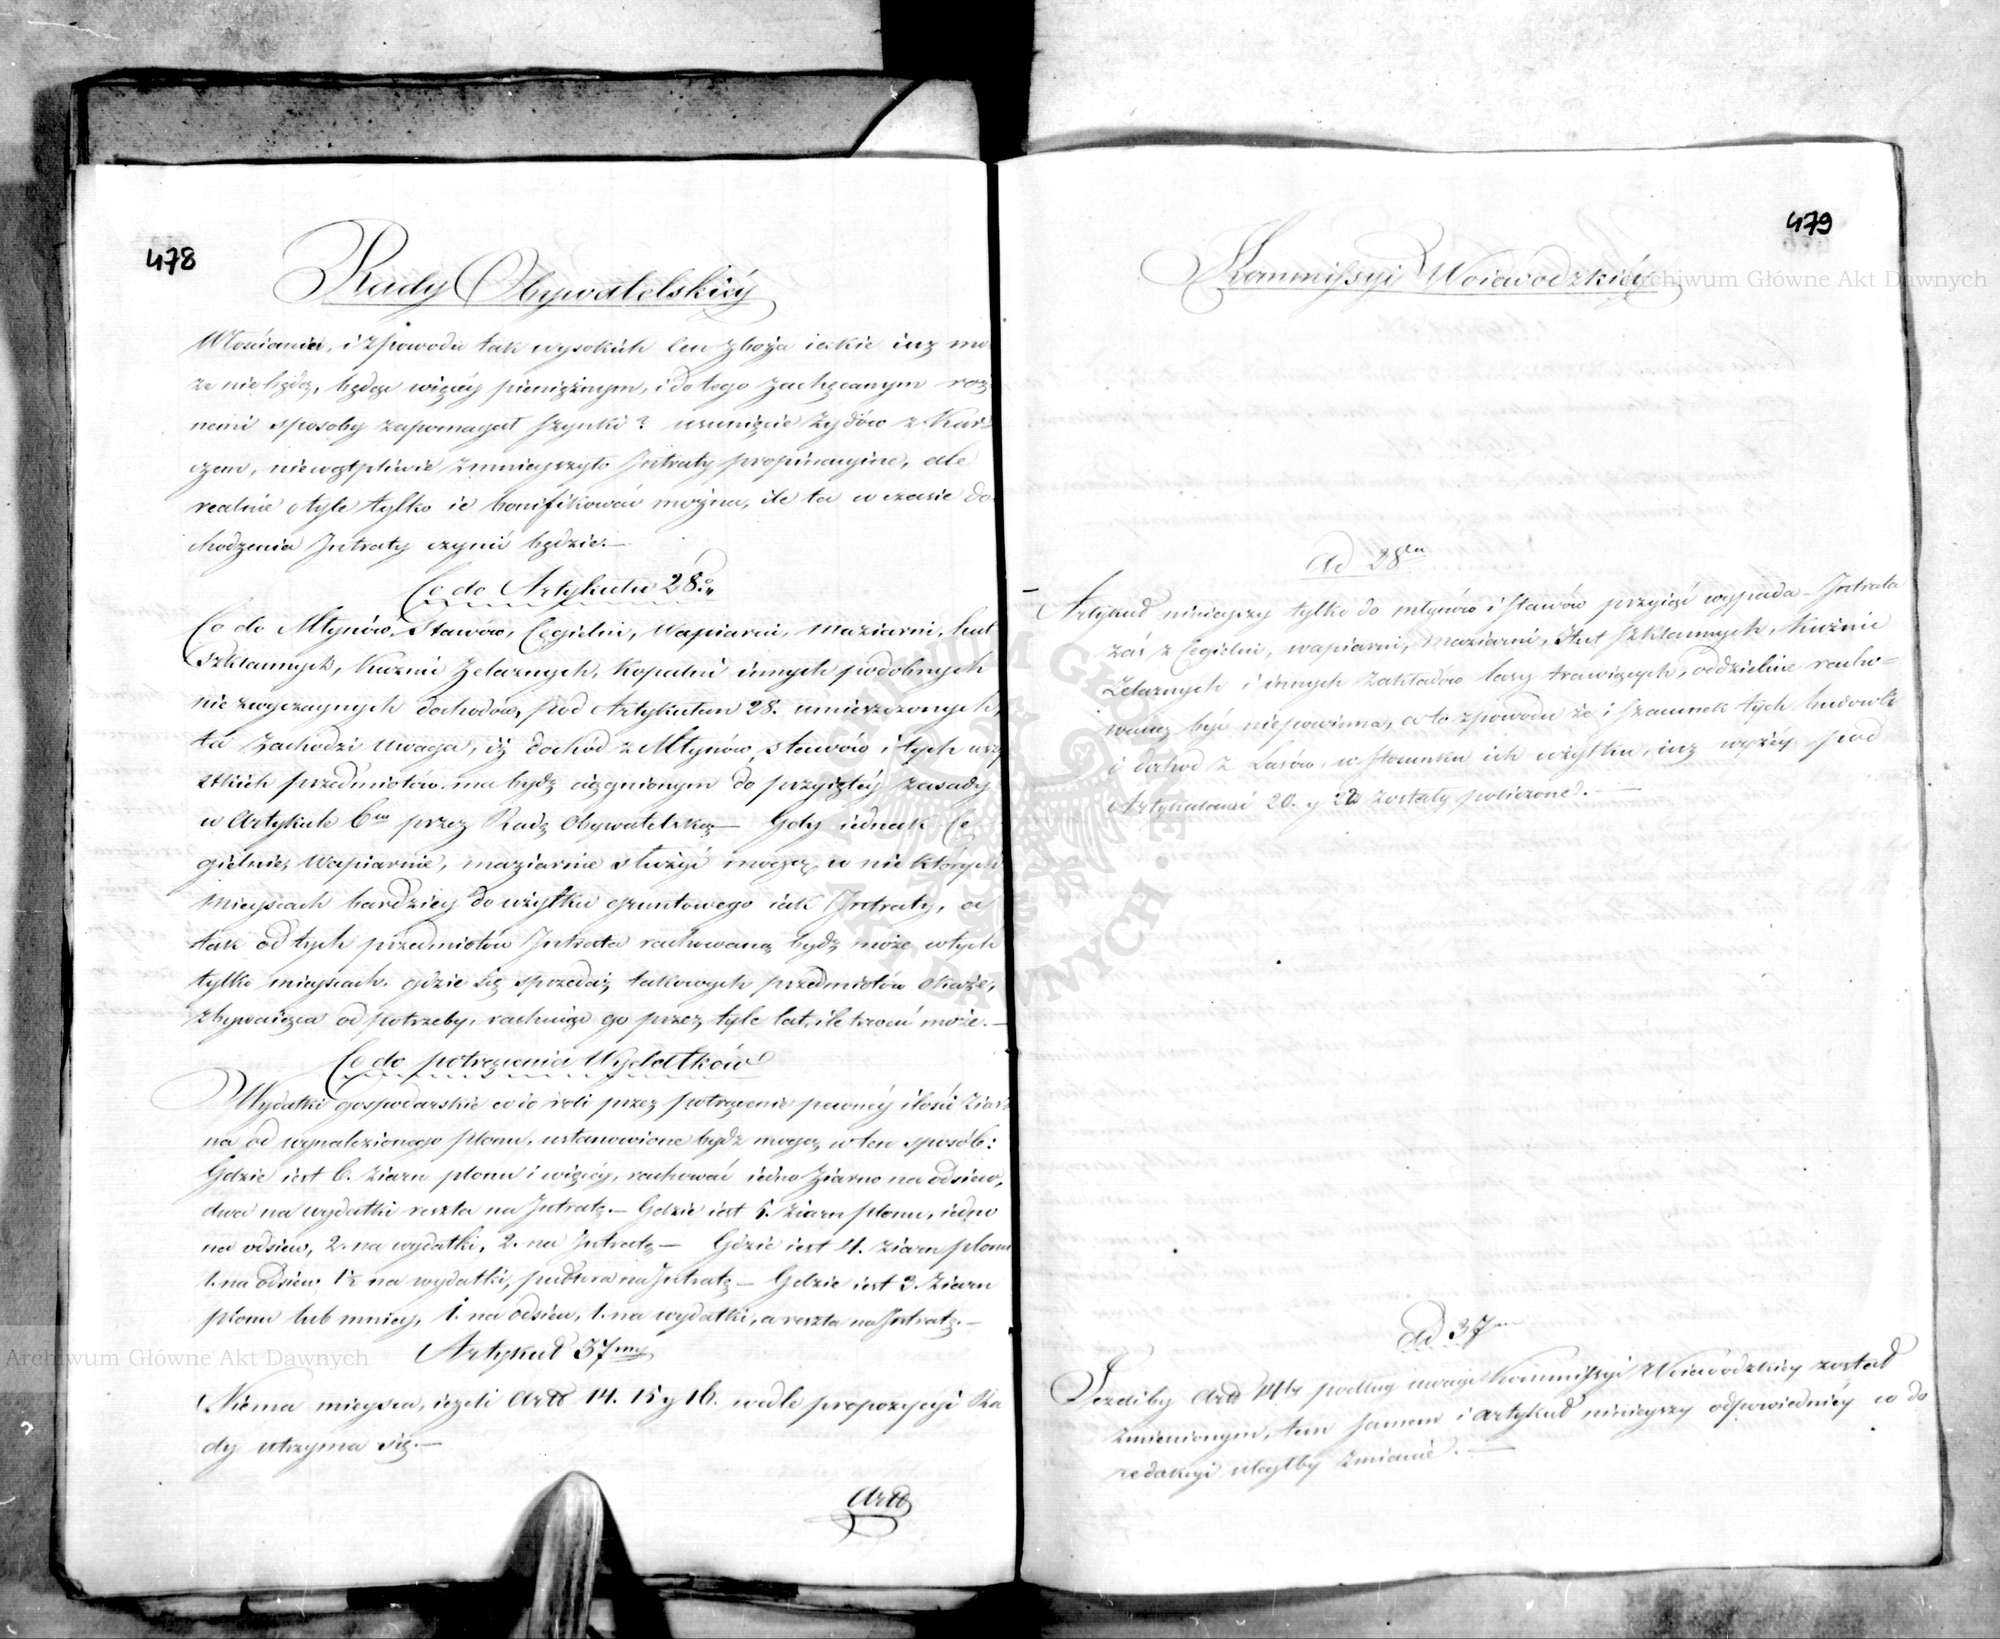 478
Rady Obywatelskiéy
Włościanin, i z powodu tak wysokich Cen zboża iakie iuz mo
że nie będą, będąc więcéy pieniężnym, i do tego zachęcanym roz
nemi sposoby zapomagał szynki? usunięcie Żydów z Kar
czem, niewątpliwie zmnieyszyło Intraty propinacyine, ale
realnie o tyle tylko ie bonifikować można, ile ta w czasie do
chodzenia Intraty czynić będzie.—
Co do Artykułu 28.
Co do Młynów, Stawów, Cegielni, Wapiarni, Maziarni, hut
Szklannych, Kuźni Żelaznych, Kopalni innych podobnych
nie zwyczaynych dochodów, pod Artykułem 28. umieszczonych,
ta zachodzi uwaga, iż dochód z Młynów, stawów i tych wszy
stkich przedmiotów ma bydź ciągnionym do przyiętéy zasady
w Artykule 6m przez Radę Obywatelską— Gdy iednak Ce
gielnie, Wapiarnie, maziarnie służyć mogą w niektórych
mieyscach bardziey do użytku gruntowego iak Intraty, a
tak od tych przedmiotów Intrata rachowaną bydź może w tych
tylko mieyscach, gdzie się sprzedaż takowych przedmiotów okaże,
zbywaiąca od potrzeby, rachuiąc go przez tyle lat, ile trwać może.—
Co do potrącenia Wydatków
Wydatki gospodarskie co do roli przez potrącenie pewnéy ilości Ziar
na od wynalezionego plonu, ustanowione bydź mogą w ten sposób:
Gdzie iest 6. Ziarn plonu i więcéy, rachować iedno Ziarno na odsiew,
dwa na wydatki reszta na Intratę.— Gdzie iest 5. Ziarn plonu, iedno
na odsiew, 2. na wydatki, 2. na Intratę— Gdzie iest 4. Ziarn plonu
1. na odsiew, 1½ na wydatki, pułtora na Intratę— Gdzie iest 3. Ziarn
plonu lub mniey, 1. na odsiew, 1. na wydatki, a reszta na Intratę.—
Artykuł 37my
Niema mieysca, ieżeli Artt 14. 15 y 16. wedle propozycyi Ra
dy utrzyma się.—
Artt
479
Kommissyi Woiewódzkiéy
Ad 28m
Artykuł ninieyszy tylko do młynów i stawów przyiąć wypada— Intrata
zaś z Cegielni, wapiarni, maziarni, Hut Szklannych, Kuźnic
Żelaznych i innych Zakładów lasy trawiących, oddzielnie racho=
waną być niepowinna, a to z powodu że i szacunek tych budowli
i dochod z Lasów, w stosunku ich użytku, iuz wyżéy pod
Artykułami 20. y 22 zostały policzone.—
ad 37m
Jeżeliby Artt 14ty podług uwagi Kommissyi Woiewódzkiey został
zmienionym, tem samem i artykuł ninieyszy odpowiedniéy co do
redakcyi uległby zmianie.—
Archiwum Główne Akt Dawnych
Archiwum Główne Akt Dawnych
ARCHIWUM GŁÓWNE AKT DAWNYCH